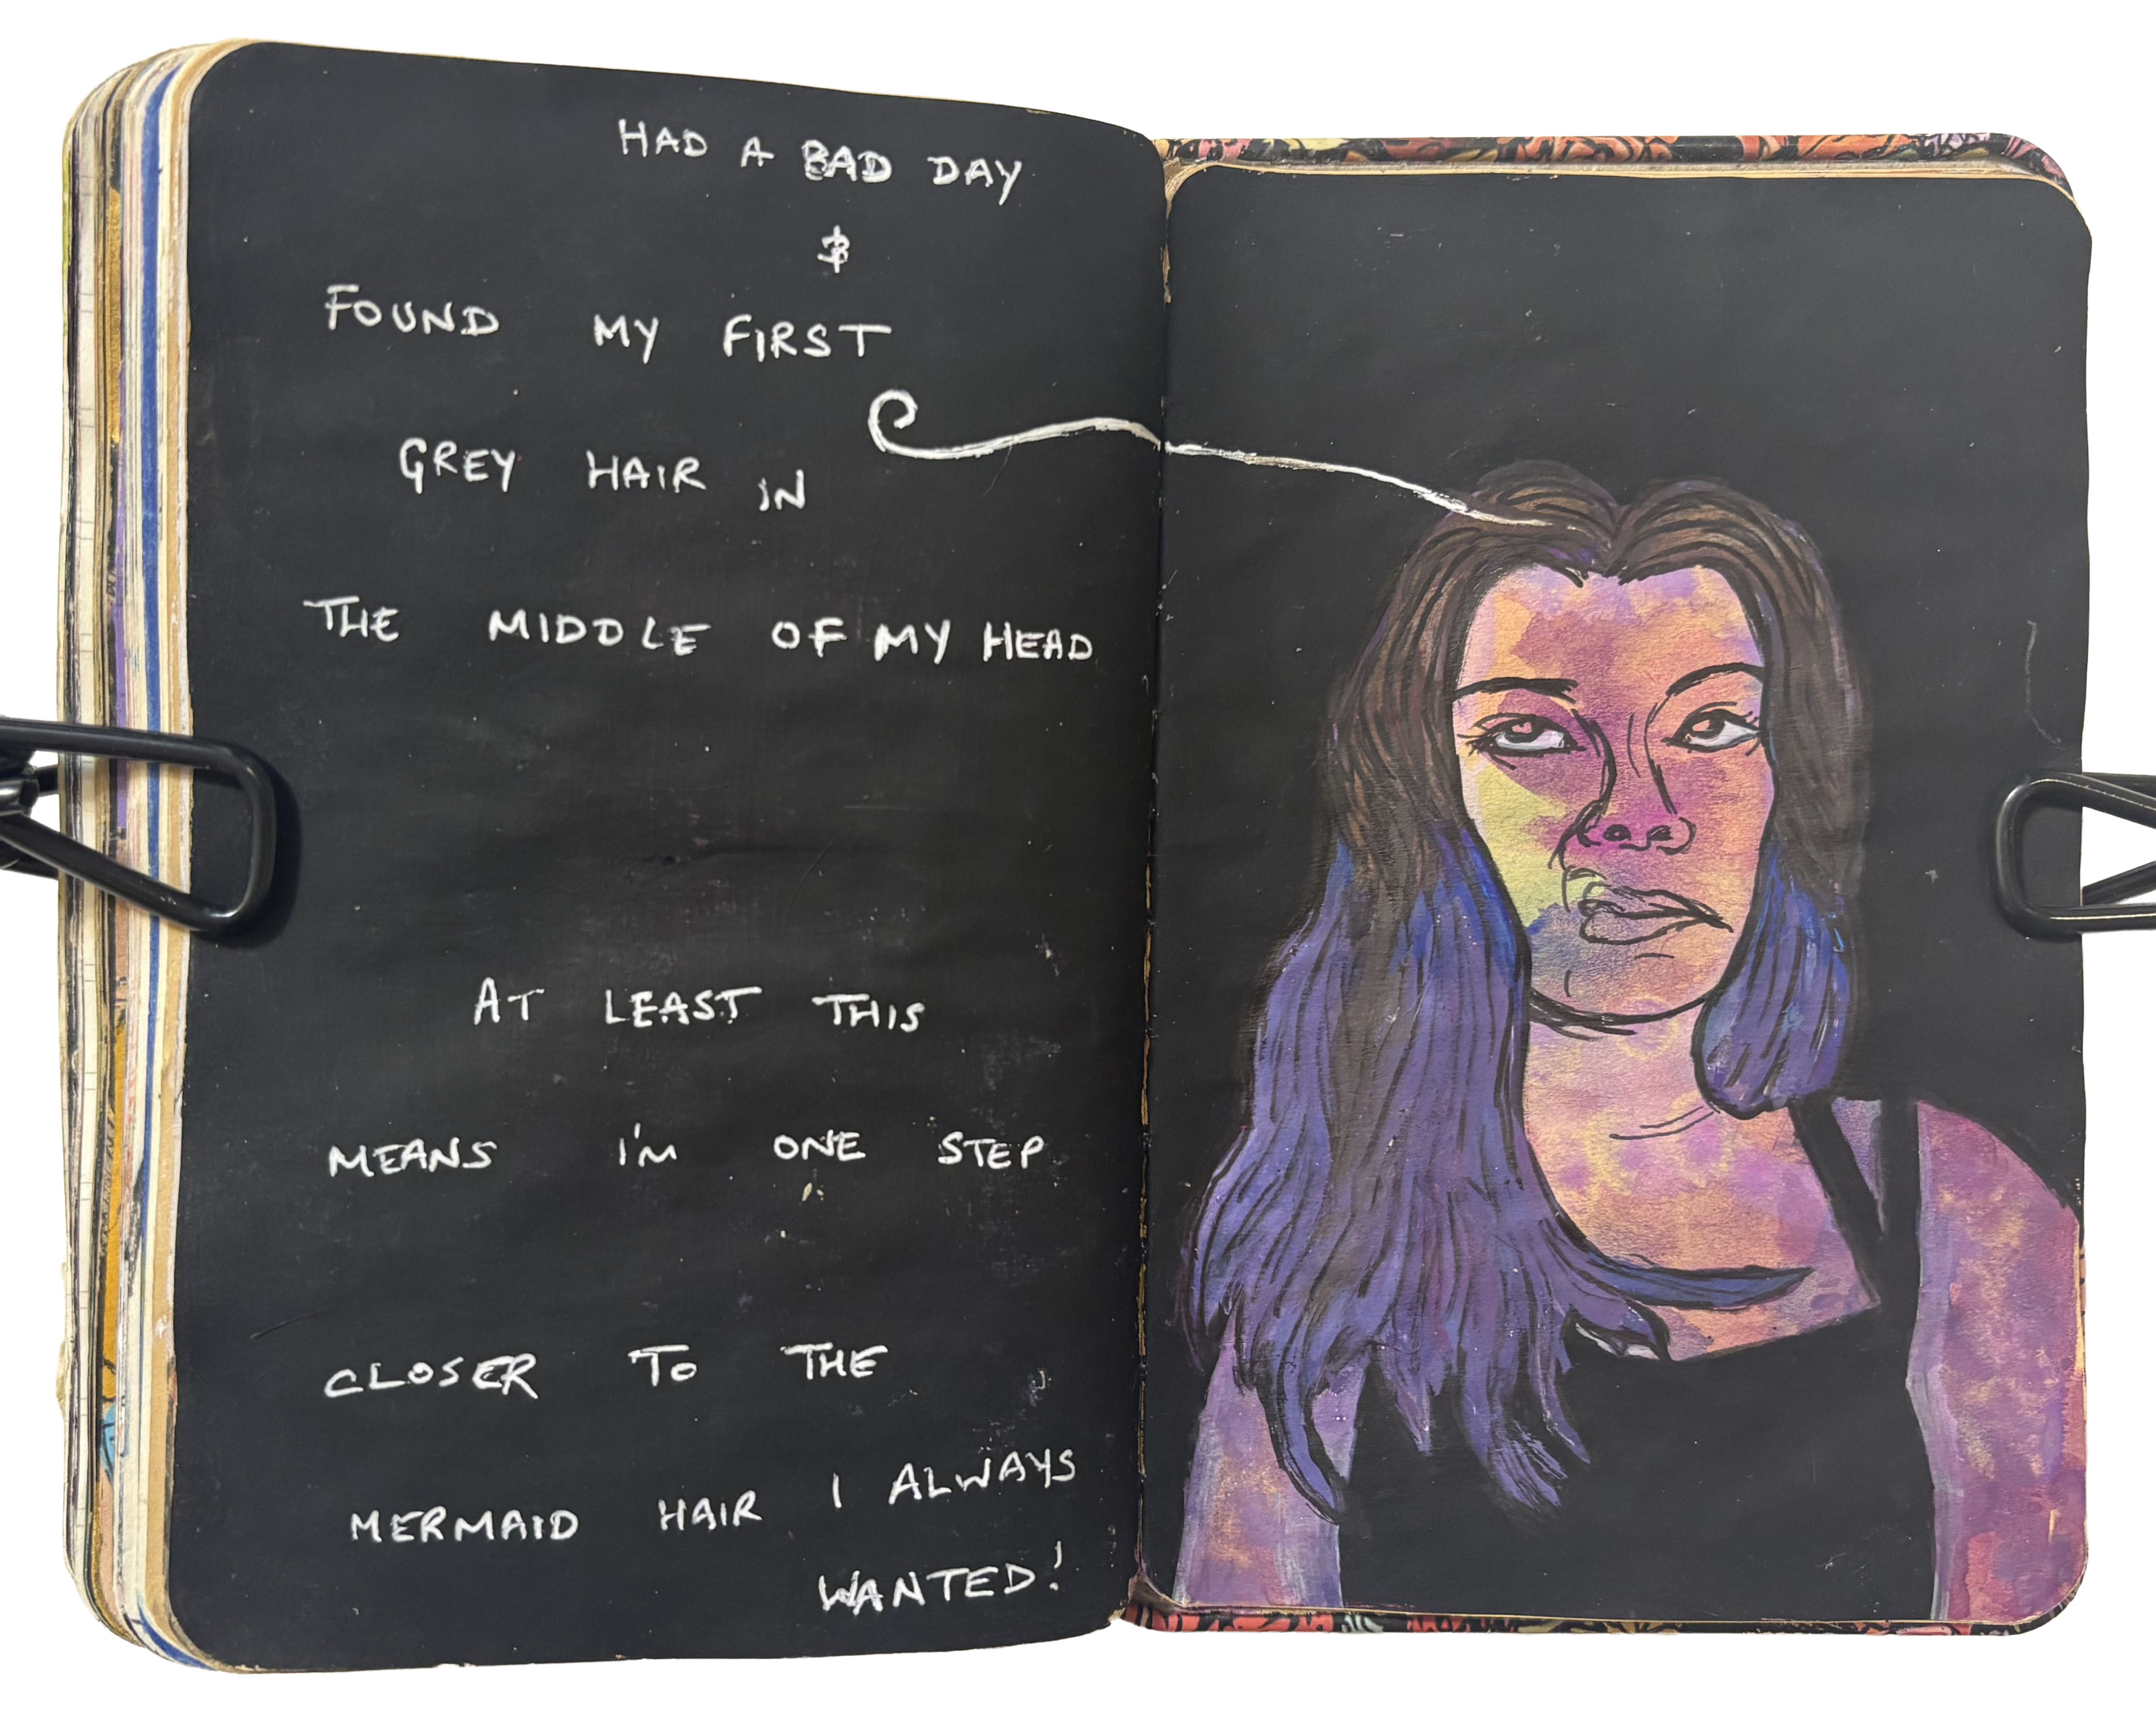 HAD A BAD DAY
&
FOUND MY FIRST
GREY HAIR IN
THE MIDDLE OF MY HEAD
AT LEAST THIS
MEANS I'M ONE STEP
CLOSER TO THE
MERMAID HAIR I ALWAYS
WANTED!